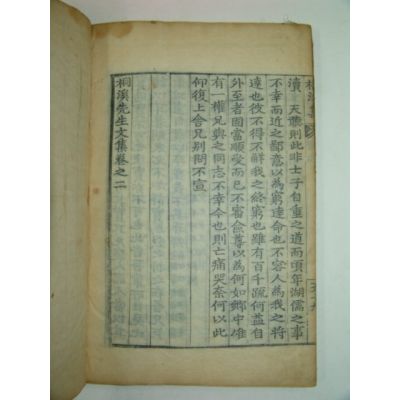 瀆天聽則此非士子自重之道而頃年湖儒之事
不幸而近之鄙意以爲窮達命也不容人爲我之將
達也彼不得不鮮我之終窮也雖有百千疏何益自
外至者固當順受而已不審僉尊以爲何如鄉中雄
有一權兄與之同志不幸今也則亡痛哭奈何以此
仰復上舍兄別問不宣
桐溪先生文集卷之二
桐溪